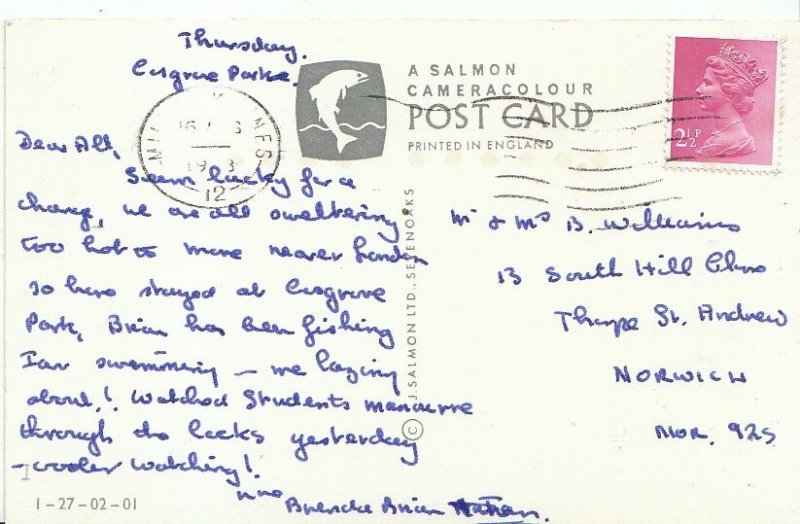 Thursday.
Cosgrove Park.
A SALMON
CAMERACOLOUR
POST CARD
PRINTED IN ENGLAND
2½P
NES
12
Dear All,
Seem lucky for a
change, we are all sweltering
too hot to move nearer London
so have stayed at Cosgrove
Park, Brian has been fishing
Ian swimming – me lazing
about! Watched Students manouvre
through the locks yesterday
– cooler watching!
Brenda Brian
1-27-02-01
© J. SALMON LTD., SEVENOAKS
Mr & Mrs B. Williams
13 South Hill Close
Thorpe St. Andrew
NORWICH
NOR. 92S